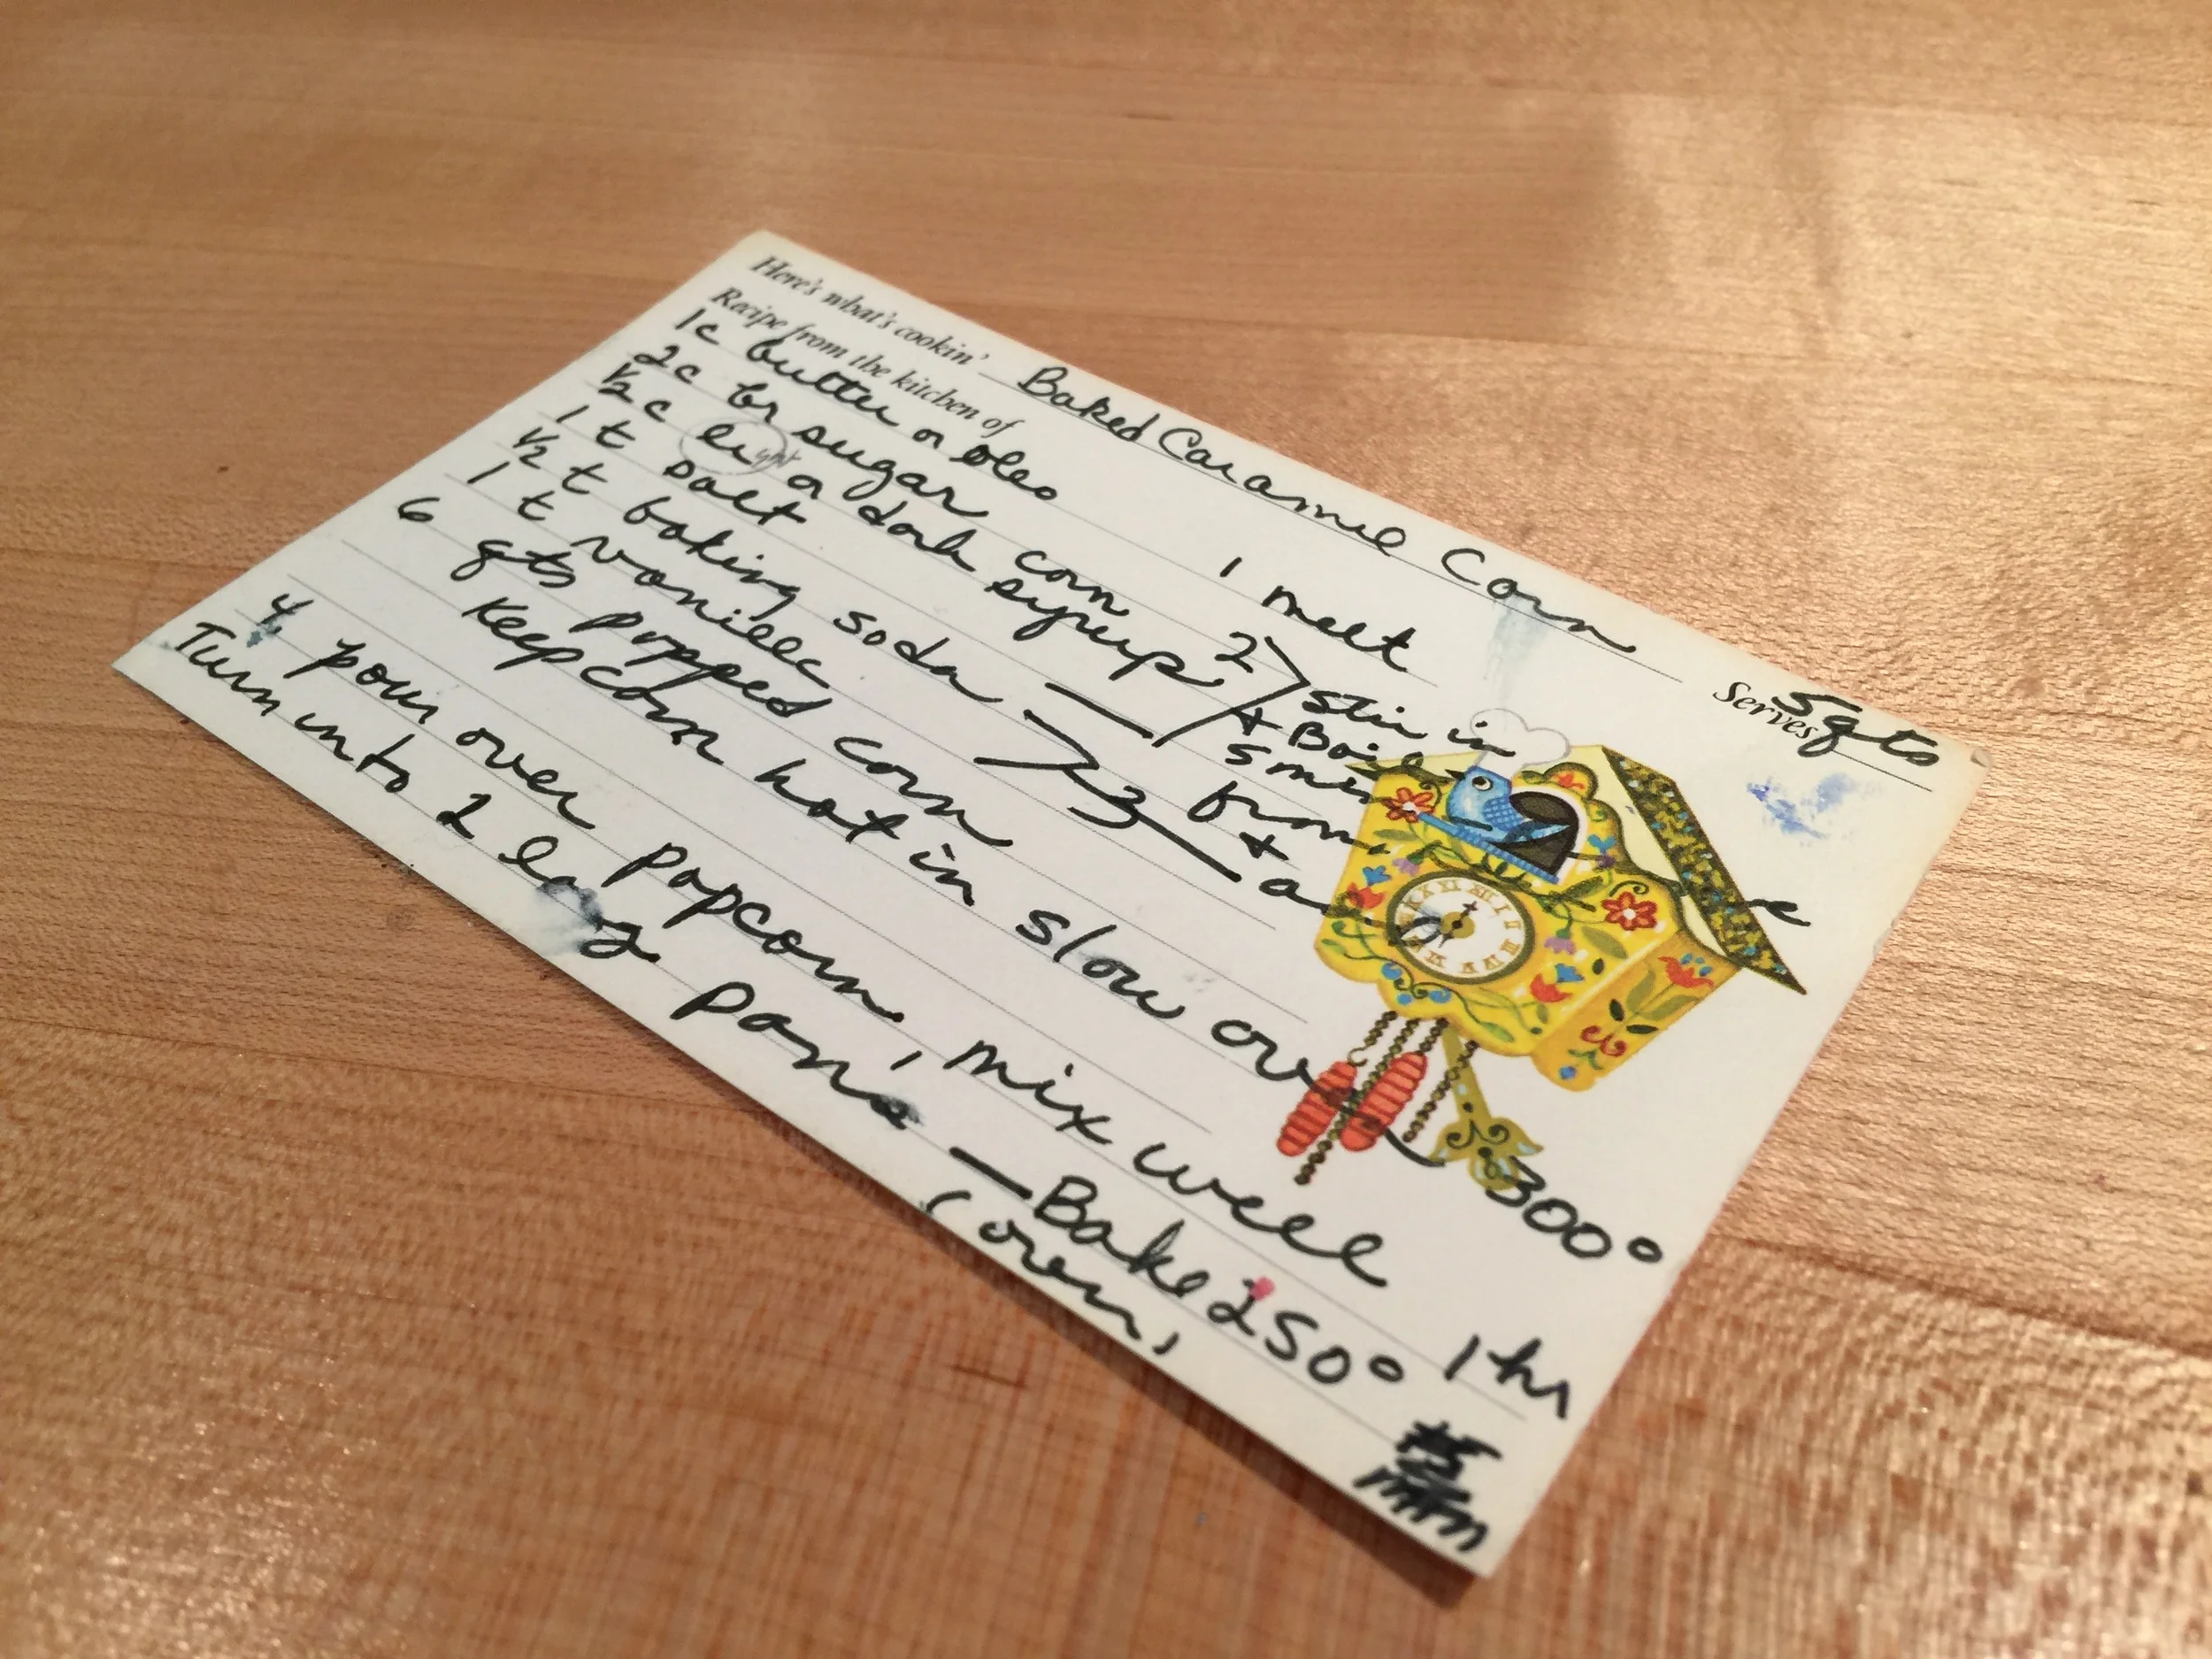 Here's what's cookin' Baked Caramel Corn
Recipe from the kitchen of Serves 5 qts
1c butter or oleo 1 melt
2c br sugar 2
½c light or dark corn syrup stir in
1 t salt + Boil 5 min
½ t baking soda from
1 t vanilla 3 + a
6 qts popped corn
Keep corn hot in slow oven 300°
4 pour over popcorn, mix well
Turn into 2 larg pans — Bake 250° 1 hr
(oven)